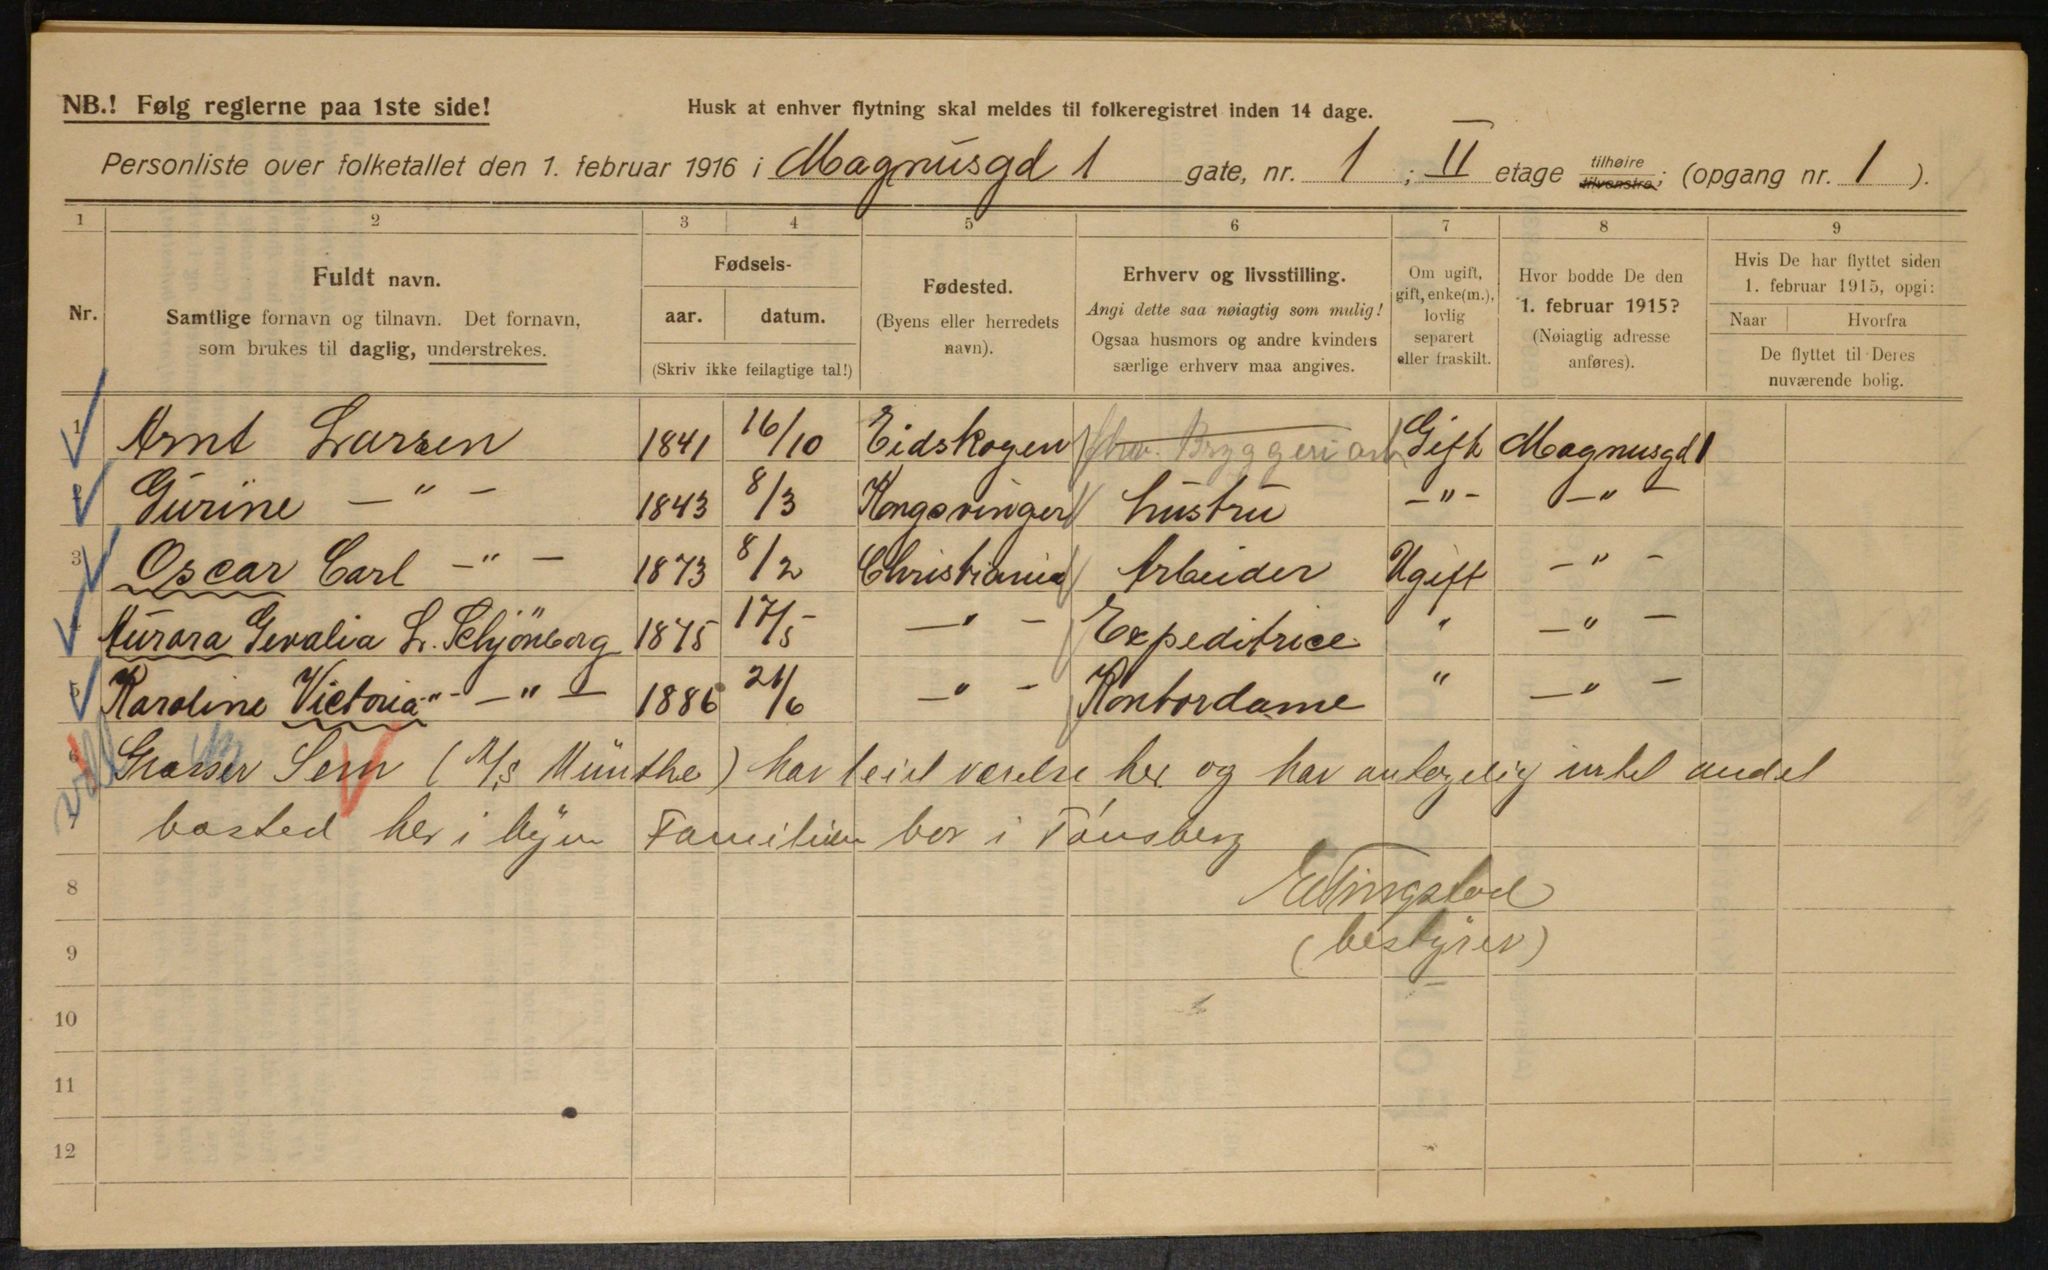 NB.! Følg reglerne paa 1ste side! Husk at enhver flytning skal meldes til folkeregistret inden 14 dage.
Personliste over folketallet den 1. februar 1916 i Magnusgd 1 gate, nr. 1 ; II etage tilhøire tilvenstre; (opgang nr. 1 ).
1 2 3 4 5 6 7 8 9
Nr.
Fuldt navn.
Samtlige fornavn og tilnavn. Det fornavn,
som brukes til daglig, understrekes.
Fødsels-
aar. datum.
(Skriv ikke feilagtige tal!)
Fødested.
(Byens eller herredets
navn).
Erhverv og livsstilling.
Angi dette saa nøiagtig som mulig!
Ogsaa husmors og andre kvinders
særlige erhverv maa angives.
Om ugift,
gift, enke(m.),
lovlig
separert
eller fraskilt.
Hvor bodde De den
1. februar 1915?
(Nøiagtig adresse
anføres).
Hvis De har flyttet siden
1. februar 1915, opgi:
Naar Hvorfra
De flyttet til Deres
nuværende bolig.
1 Arnt Larsen 1841 16/10 Eidskogen Bryggeriarb. Gift Magnusgd 1
Gurine — " — 1843 8/3 Kongsvinger hustru — " — — " —
3 Oscar Carl — " — 1873 8/2 Christiania Arbeider Ugift — " —
Aurora Gevalia L. Schjönberg 1875 17/5 — " — Expeditrice " — " —
Karoline Victoria " — " — 1886 21/6 — " — Kontordame " — " —
Grosser Sem ( A/S Münthe ) har leiet værelse her og har antagelig intet andet
bosted her i byen Familien bor i Tønsberg
8 E Tingstad
9 (bestyrer)
10
11
12